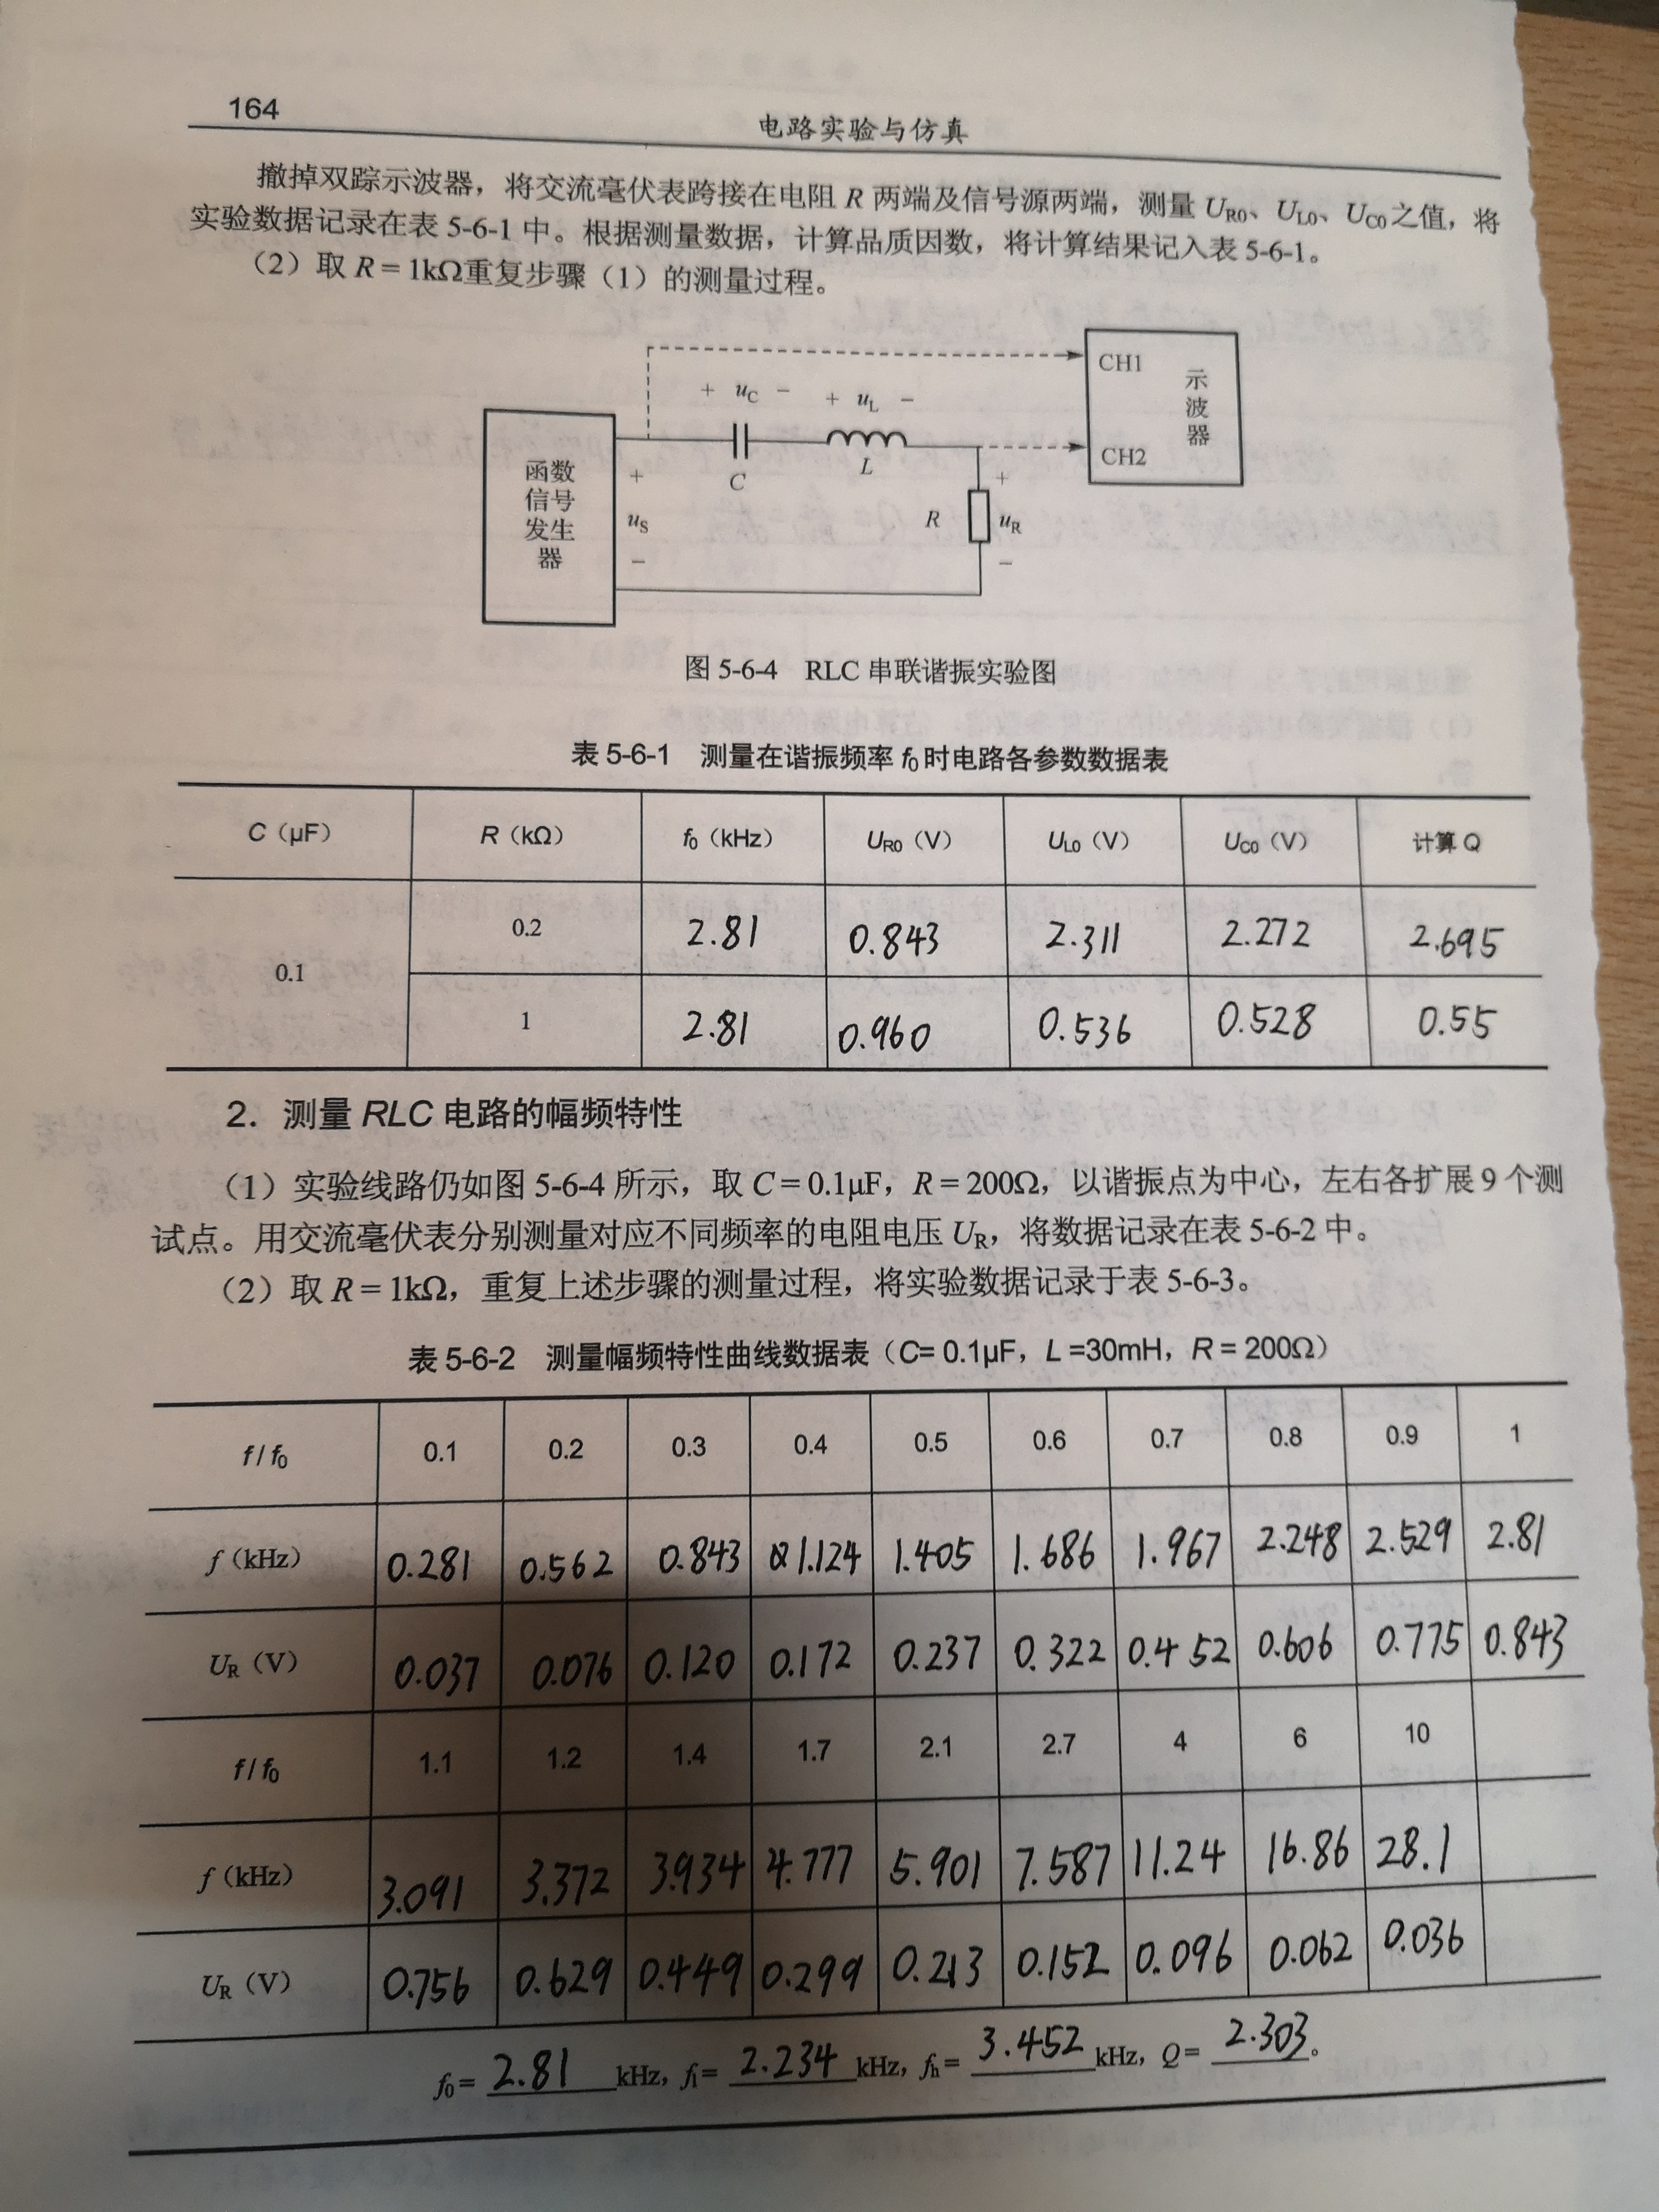 164
电路实验与仿真
撤掉双踪示波器，将交流毫伏表跨接在电阻 R 两端及信号源两端，测量 UR0、UL0、UC0之值，将
实验数据记录在表 5-6-1 中。根据测量数据，计算品质因数，将计算结果记入表 5-6-1。
（2）取 R = 1kΩ重复步骤（1）的测量过程。
CH1
示波器
+ uC −
+ uL −
函数信号发生器
CH2
C
L
+
uS
−
R
+
uR
−
图 5-6-4 RLC 串联谐振实验图
表 5-6-1 测量在谐振频率 f0 时电路各参数数据表
C（μF） R（kΩ） f0（kHz） UR0（V） UL0（V） UC0（V） 计算 Q
0.1
0.2 2.81 0.843 2.311 2.272 2.695
1 2.81 0.960 0.536 0.528 0.55
2．测量 RLC 电路的幅频特性
（1）实验线路仍如图 5-6-4 所示，取 C = 0.1μF，R = 200Ω，以谐振点为中心，左右各扩展 9 个测
试点。用交流毫伏表分别测量对应不同频率的电阻电压 UR，将数据记录在表 5-6-2 中。
（2）取 R = 1kΩ，重复上述步骤的测量过程，将实验数据记录于表 5-6-3。
表 5-6-2 测量幅频特性曲线数据表（C= 0.1μF，L =30mH，R = 200Ω）
f / f0 0.1 0.2 0.3 0.4 0.5 0.6 0.7 0.8 0.9 1
f（kHz） 0.281 0.562 0.843 1.124 1.405 1.686 1.967 2.248 2.529 2.81
UR（V） 0.037 0.076 0.120 0.172 0.237 0.322 0.452 0.606 0.775 0.843
f / f0 1.1 1.2 1.4 1.7 2.1 2.7 4 6 10
f（kHz） 3.091 3.372 3.934 4.777 5.901 7.587 11.24 16.86 28.1
UR（V） 0.756 0.629 0.449 0.299 0.213 0.152 0.096 0.062 0.036
f0= 2.81 kHz，fl= 2.234 kHz，fh= 3.452 kHz，Q= 2.303。